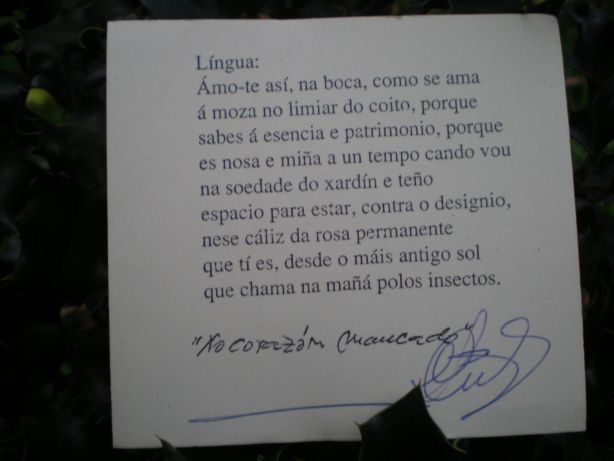 Língua:
Ámo-te así, na boca, como se ama
á moza no limiar do coito, porque
sabes á esencia e patrimonio, porque
es nosa e miña a un tempo cando vou
na soedade do xardín e teño
espacio para estar, contra o designio,
nese cáliz da rosa permanente
que tí es, desde o máis antigo sol
que chama na mañá polos insectos.
"No corazón mancado"